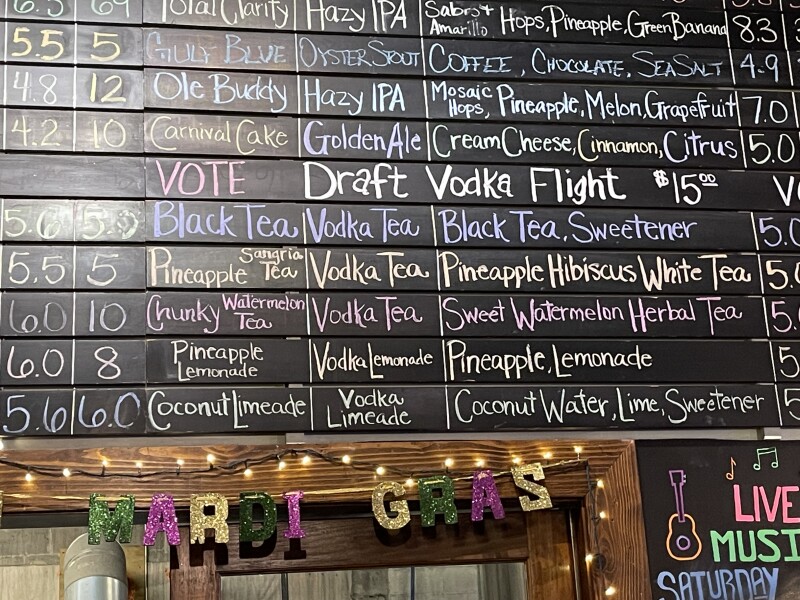 6.5 69 Total Clarity Hazy IPA Sabro + Amarillo Hops, Pineapple, Green Banana 8.3
5.5 5 Gulf Blue Oyster Stout Coffee, Chocolate, Sea Salt 4.9
4.8 12 Ole Buddy Hazy IPA Mosaic Hops, Pineapple, Melon, Grapefruit 7.0
4.2 10 Carnival Cake Golden Ale Cream Cheese, Cinnamon, Citrus 5.0
VOTE Draft Vodka Flight $15.00 V
5.6 5.0 Black Tea Vodka Tea Black Tea, Sweetener 5.0
5.5 5 Pineapple Sangria Tea Vodka Tea Pineapple Hibiscus White Tea 5.0
6.0 10 Chunky Watermelon Tea Vodka Tea Sweet Watermelon Herbal Tea 5.0
6.0 8 Pineapple Lemonade Vodka Lemonade Pineapple, Lemonade 5
5.6 6.0 Coconut Limeade Vodka Limeade Coconut Water, Lime, Sweetener 5
MARDI GRAS
LIVE
MUSI
SATURDAY